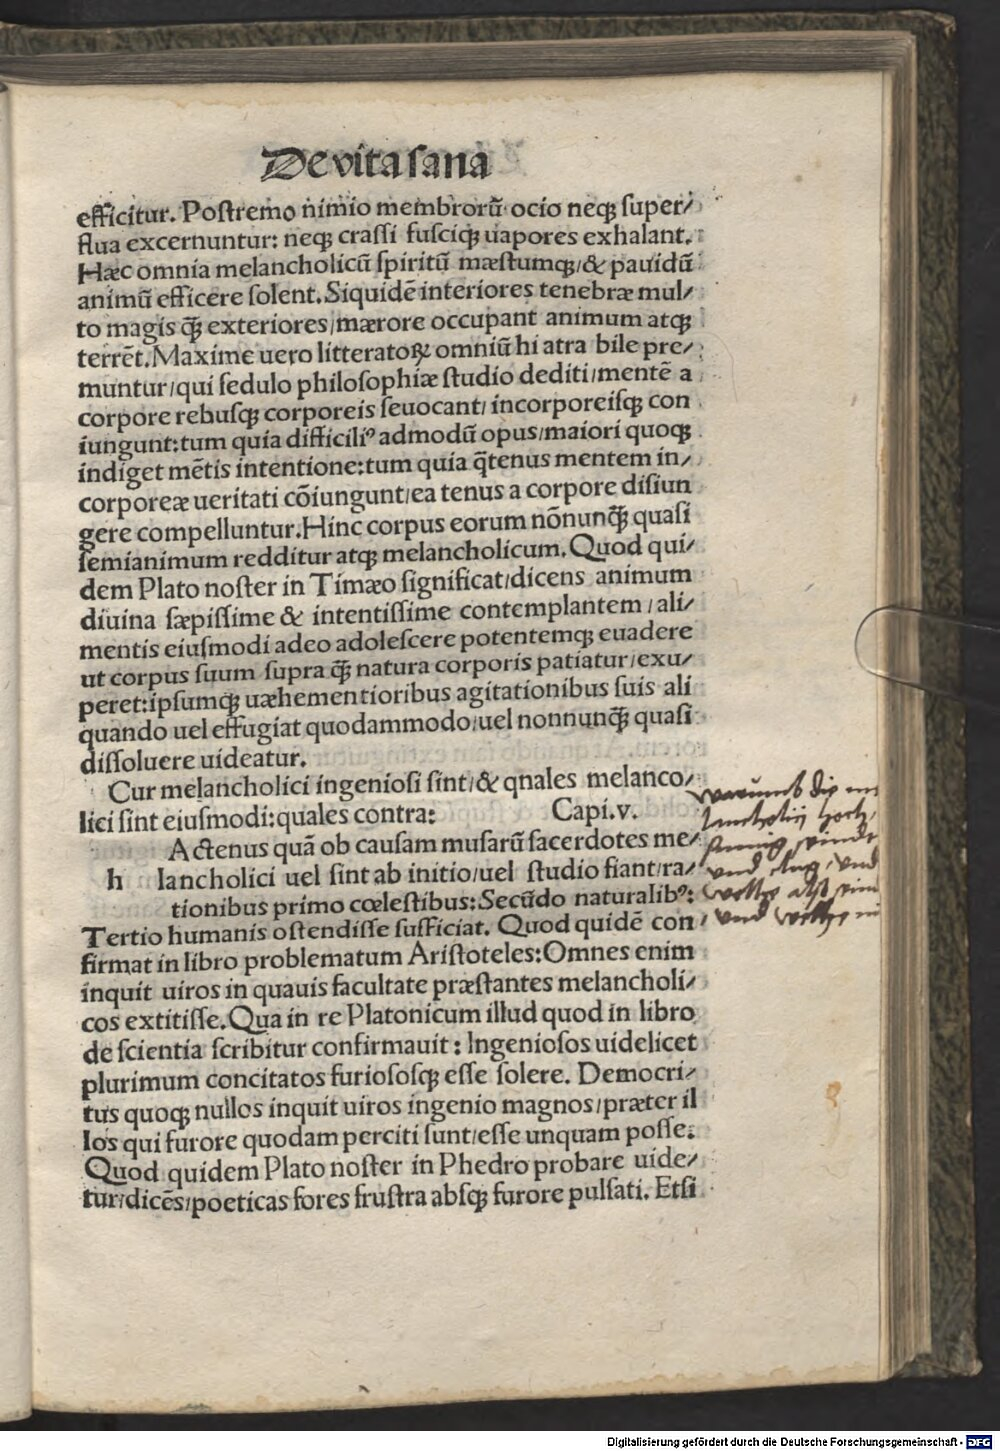 De vita sana
efficitur. Poſtremo nimio membrorũ ocio neqꝫ ſuper/
flua excernuntur: neqꝫ craſſi fuſciqꝫ uapores exhalant.
Hæc omnia melancholicũ ſpiritũ mæſtumqꝫ/& pauidũ
animũ efficere ſolent. Siquidẽ interiores tenebræ mul/
to magis q̃ꝫ exteriores/mærore occupant animum atqꝫ
terrẽt. Maxime uero litteratoꝝ omniũ hi atra bile pre/
muntur/qui ſedulo philoſophiæ ſtudio dediti/mentẽ a
corpore rebuſqꝫ corporeis ſeuocant/incorporeiſqꝫ con
iungunt: tum quia difficiliꝰ admodũ opus/maiori quoqꝫ
indiget mẽtis intentione: tum quia q̃tenus mentem in/
corporeæ ueritati cõiungunt/ea tenus a corpore diſiun
gere compelluntur. Hinc corpus eorum nõnunq̃ꝫ quaſi
ſemianimum redditur atqꝫ melancholicum. Quod qui/
dem Plato noſter in Timæo ſignificat/dicens animum
diuina ſæpiſſime & intentiſſime contemplantem/ali/
mentis eiuſmodi adeo adoleſcere potentemqꝫ euadere
ut corpus ſuum ſupra q̃ꝫ natura corporis patiatur/exu/
peret: ipſumqꝫ uæhementioribus agitationibus ſuis ali
quando uel effugiat quodammodo/uel nonnunq̃ꝫ quaſi
diſſoluere uideatur.
Cur melancholici ingenioſi ſint/& qnales melanco/
lici ſint eiuſmodi: quales contra: Capi. v.
Actenus quã ob cauſam muſarũ ſacerdotes me/
h lancholici uel ſint ab initio/uel ſtudio fiant/ra/
tionibus primo cœleſtibus: Secũdo naturalibꝰ:
Tertio humanis oſtendiſſe ſufficiat. Quod quidẽ con/
firmat in libro problematum Ariſtoteles: Omnes enim
inquit uiros in quauis facultate præſtantes melancholi/
cos extitiſſe. Qua in re Platonicum illud quod in libro
de ſcientia ſcribitur confirmauit: Ingenioſos uidelicet
plurimum concitatos furioſoſqꝫ eſſe ſolere. Democri/
tus quoqꝫ nullos inquit uiros ingenio magnos/præter il
los qui furore quodam perciti ſunt/eſſe unquam poſſe.
Quod quidem Plato noſter in Phedro probare uide/
tur/dicẽs/poeticas fores fruſtra abſqꝫ furore pulſati. Etſi
und
Digitalisierung gefördert durch die Deutsche Forschungsgemeinschaft - DFG